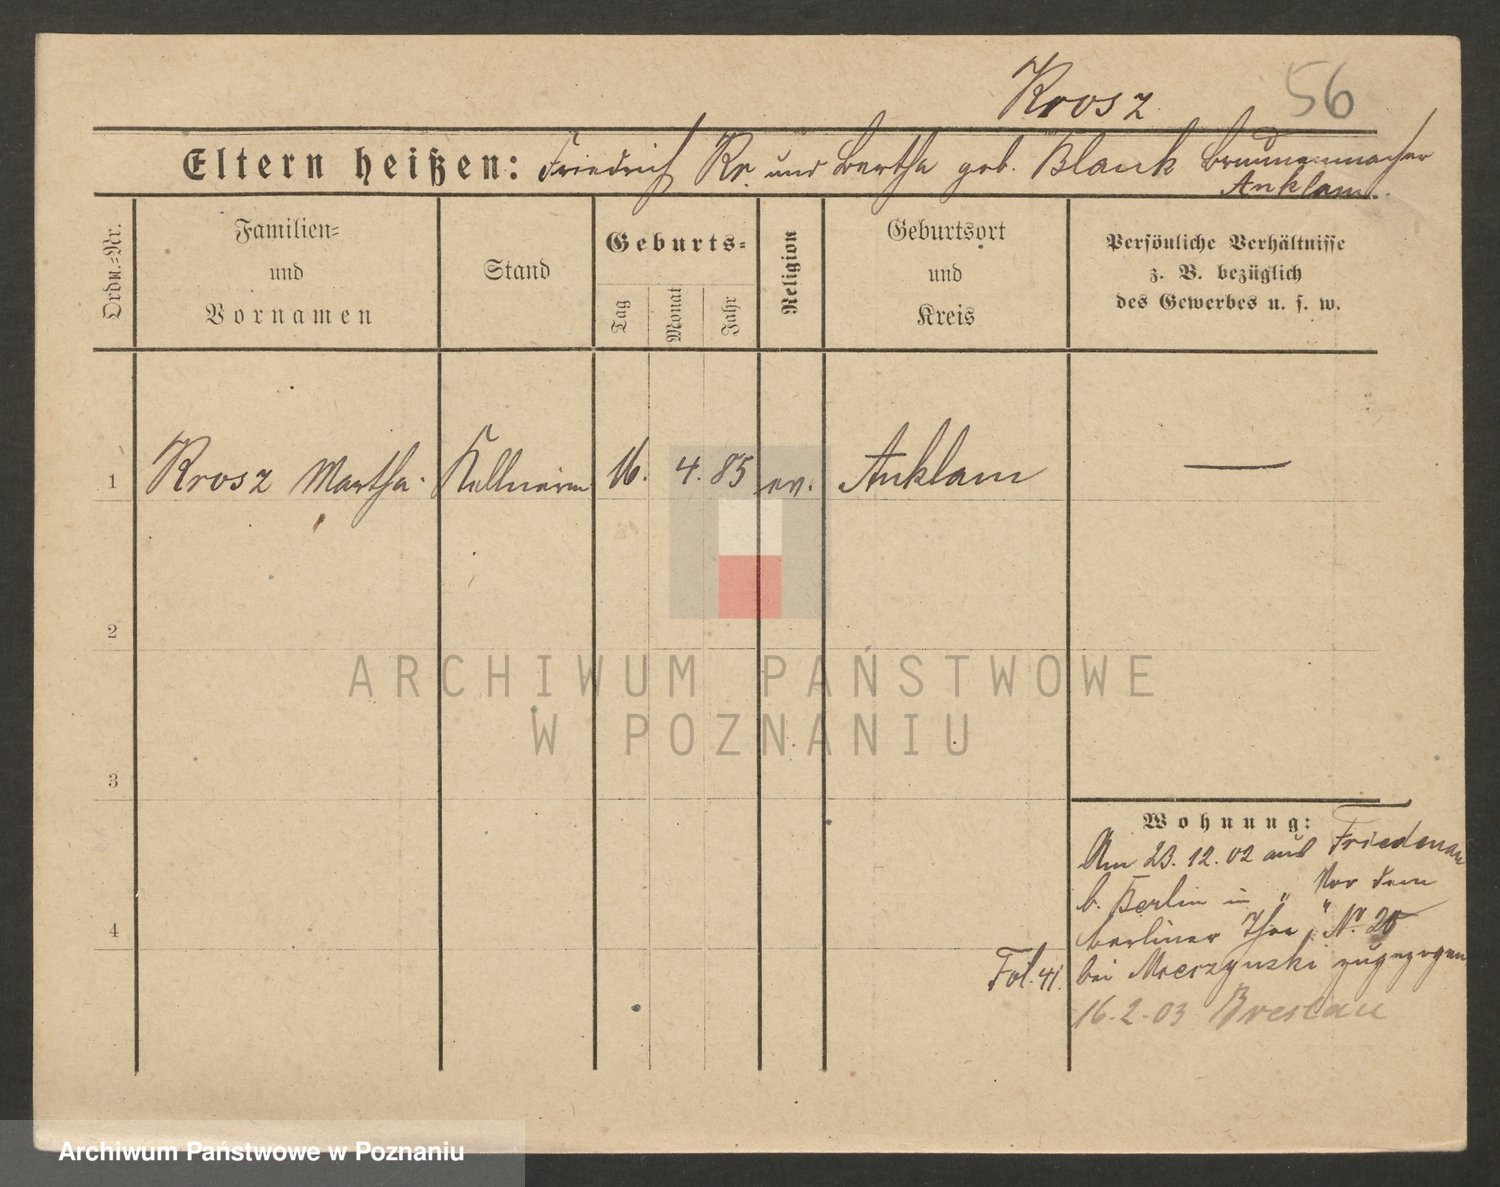 Krosz 56
Eltern heißen: Friedrich Kr. und Bertha geb. Blank Brunnenmacher
Anklam.
Ordn.-Nr.
Familien-
und
Vornamen
Stand
Geburts-
Tag
Monat
Jahr
Religion
Geburtsort
und
Kreis
Persönliche Verhältnisse
z. B. bezüglich
des Gewerbes u. s. w.
1 Krosz Martha. Kellnerin 16. 4. 85 ev. Anklam —
2
ARCHIWUM PAŃSTWOWE
W POZNANIU
3
Wohnung:
Am 23. 12. 02 aus Friedenau
b. Berlin in „ Vor dem
4
Berliner Thor " No. 20
Fol. 41. bei Mreczynski zugezogen
16.2.03 Breslau
Archiwum Państwowe w Poznaniu